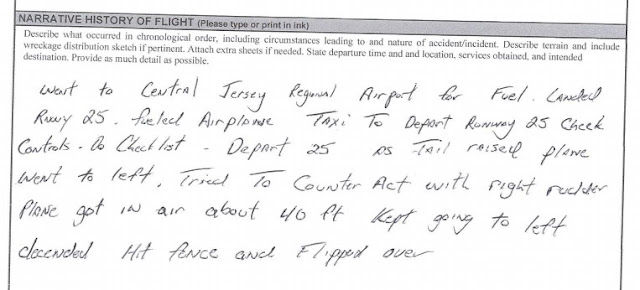 NARRATIVE HISTORY OF FLIGHT (Please type or print in ink)
Describe what occurred in chronological order, including circumstances leading to and nature of accident/incident. Describe terrain and include
wreckage distribution sketch if pertinent. Attach extra sheets if needed. State departure time and and location, services obtained, and intended
destination. Provide as much detail as possible.
Went to Central Jersey Regional Airport for Fuel. Landed
Rnwy 25. fueled Airplane Taxi To Depart Runway 25 Check
Controls - Do Checklist - Depart 25 as Tail raised plane
went to left, Tried To Counter Act with right rudder
Plane got in air about 40 ft Kept going to left
decended Hit fence and Flipped over